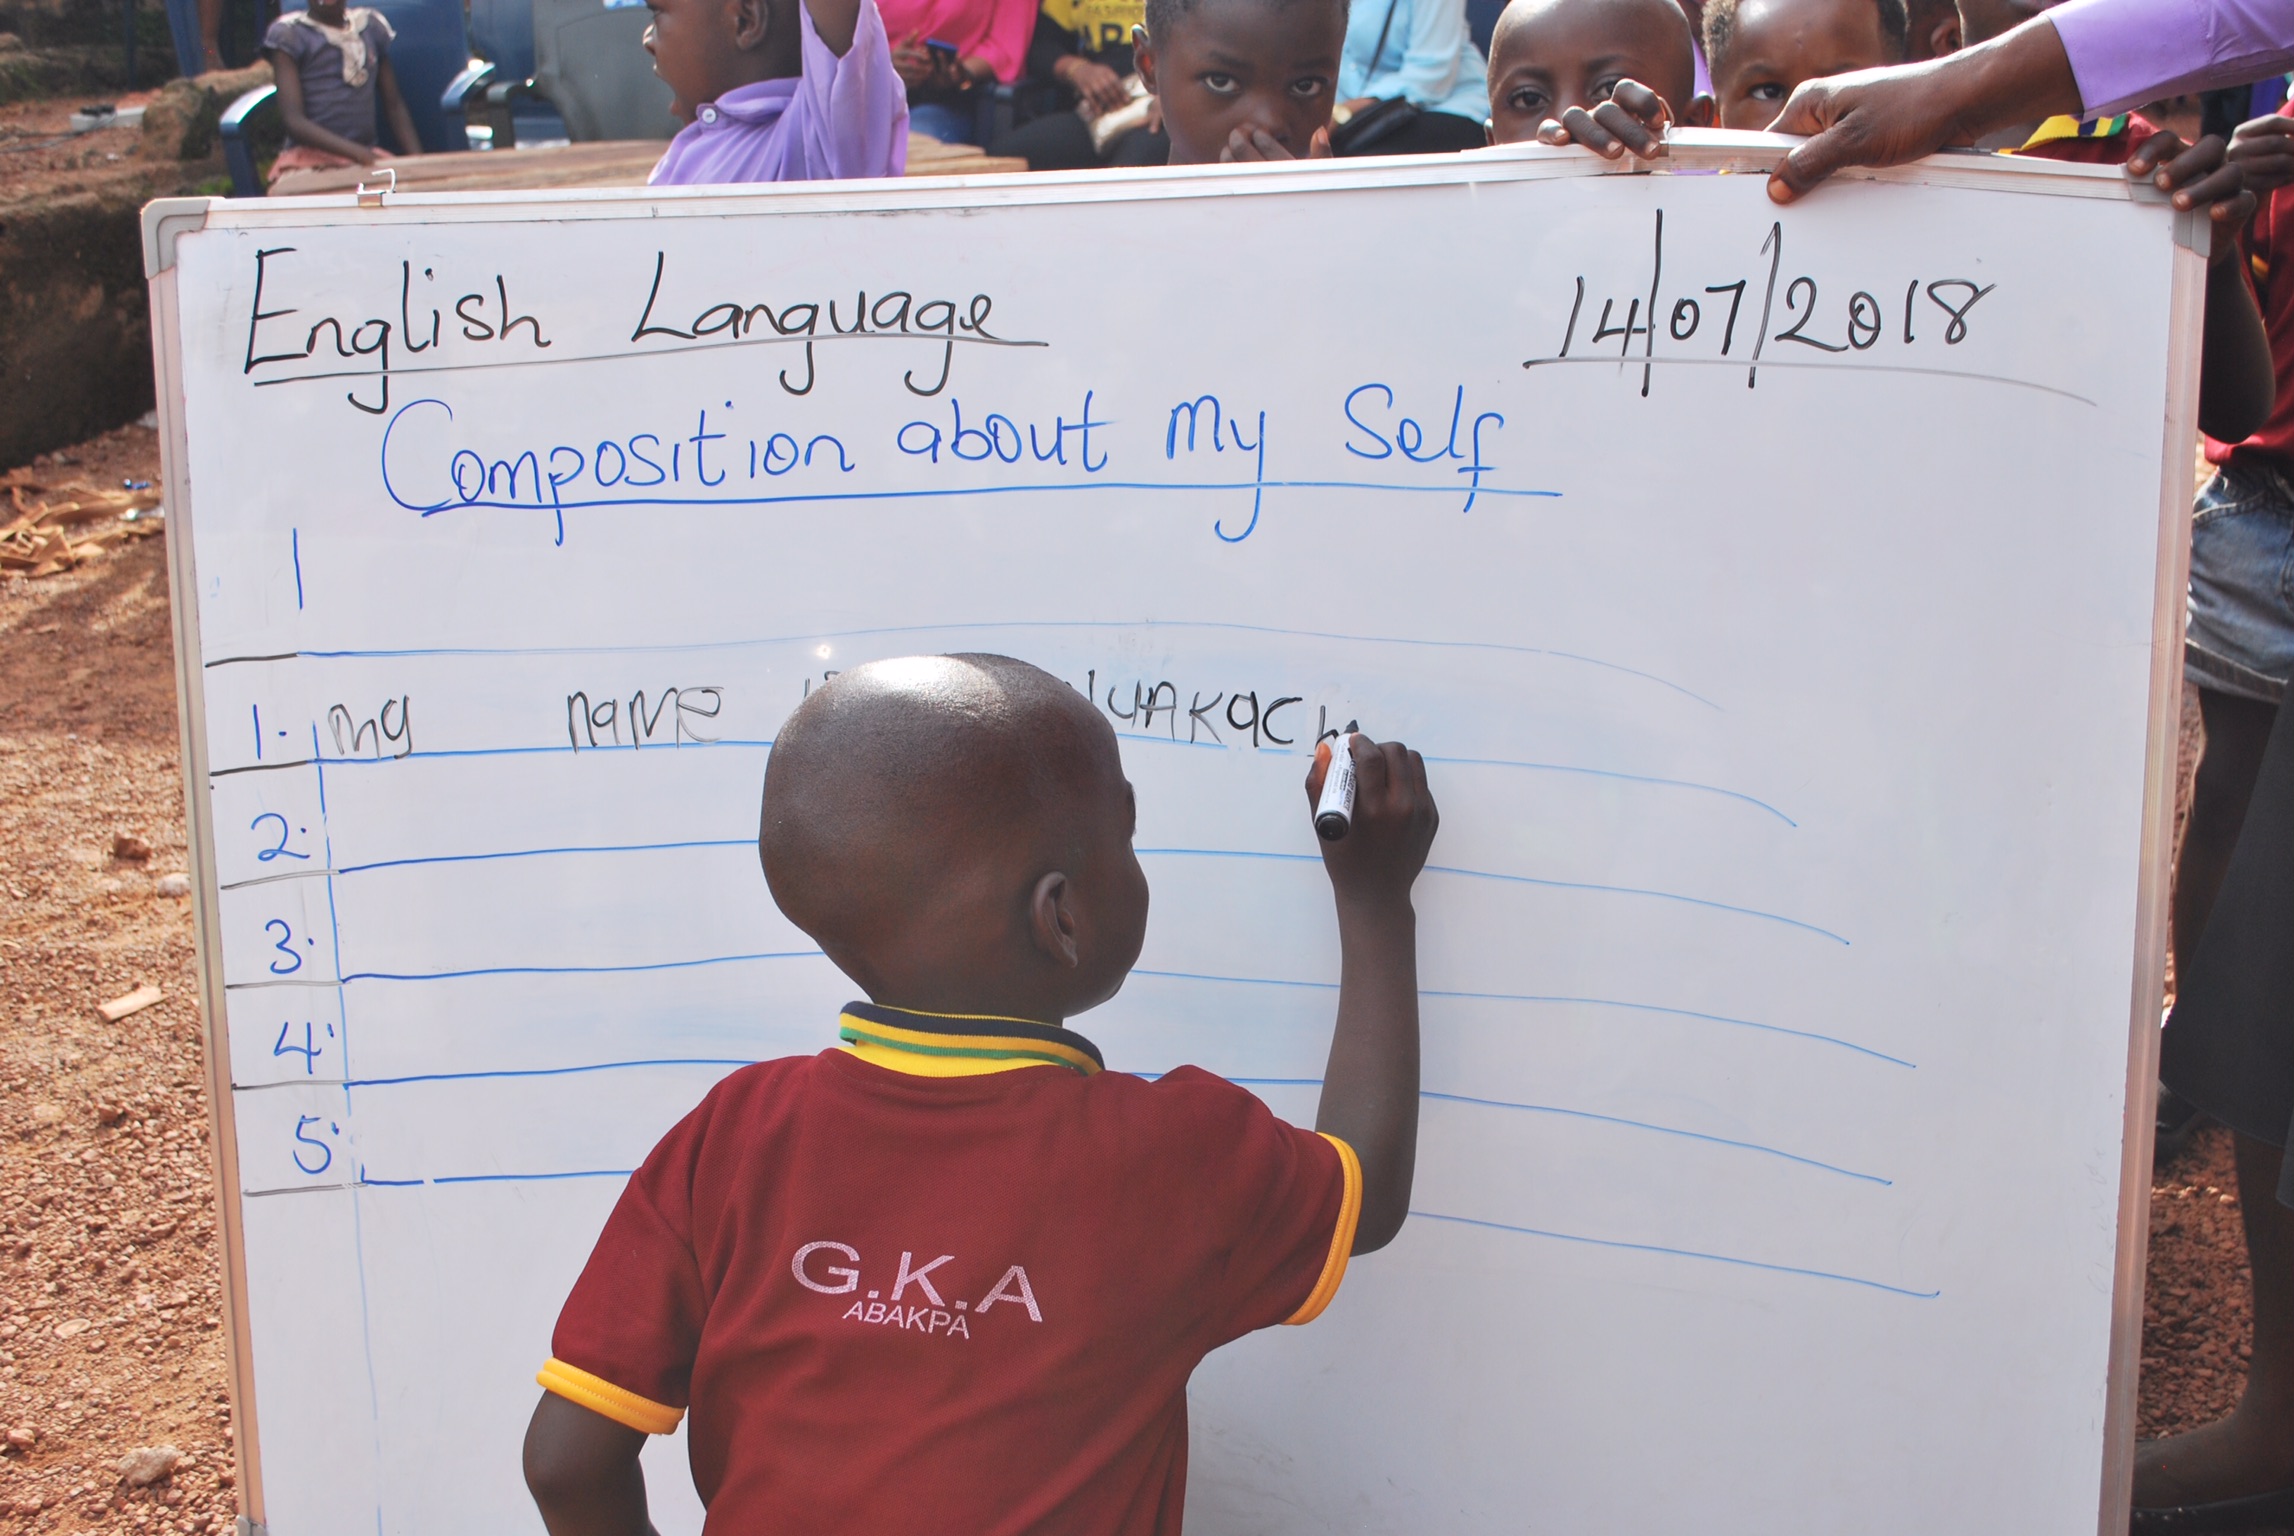 English Language 14/07/2018
Composition about My Self
1
1. my name
2.
3.
4.
5.
G.K.A
ABAKPA